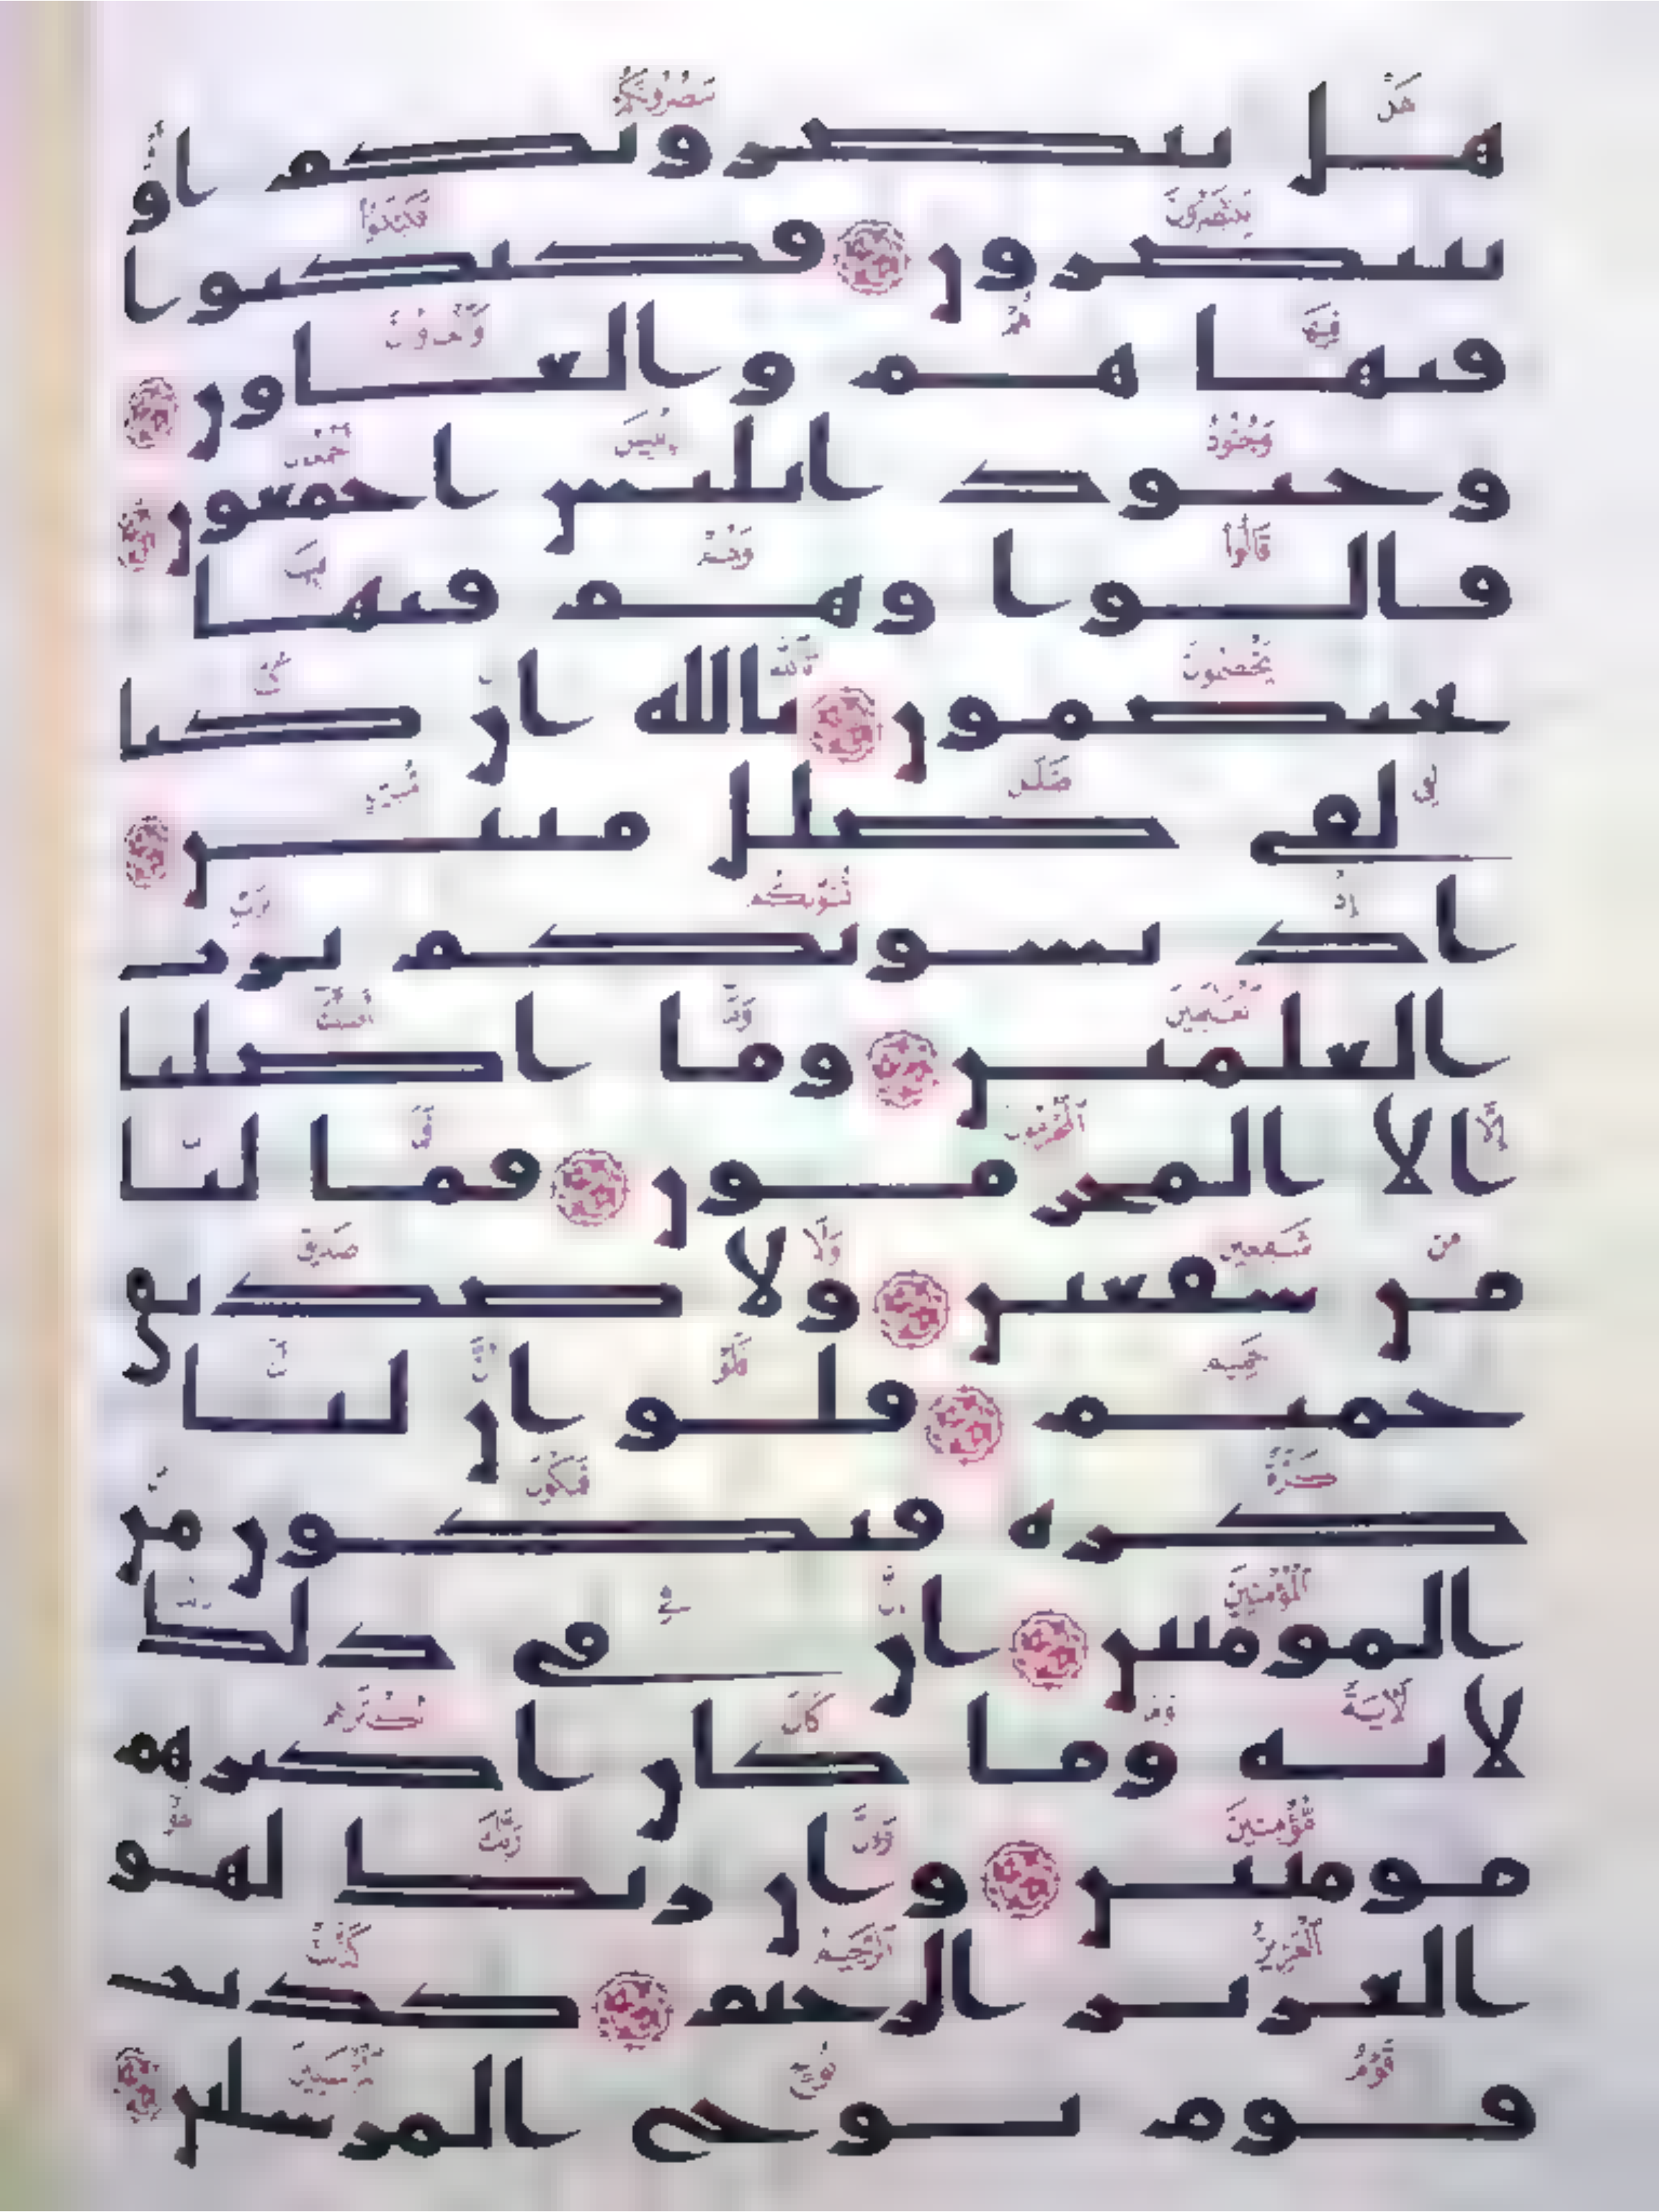 هل ينصرونكم او
ينتصرون فكبكبوا
فيها هم والغاون
وجنود ابليس اجمعون
قالوا وهم فيها
يختصمون تالله ان كنا
لفي ضلل مبين
اذ نسويكم برب
العلمين وما اضلنا
الا المجرمون فما لنا
من شفعين ولا صديق
حميم فلو ان لنا
كرة فنكون من
المومنين ان في ذلك
لاية وما كان اكثرهم
مومنين وان ربك لهو
العزيز الرحيم كذبت
قوم نوح المرسلين